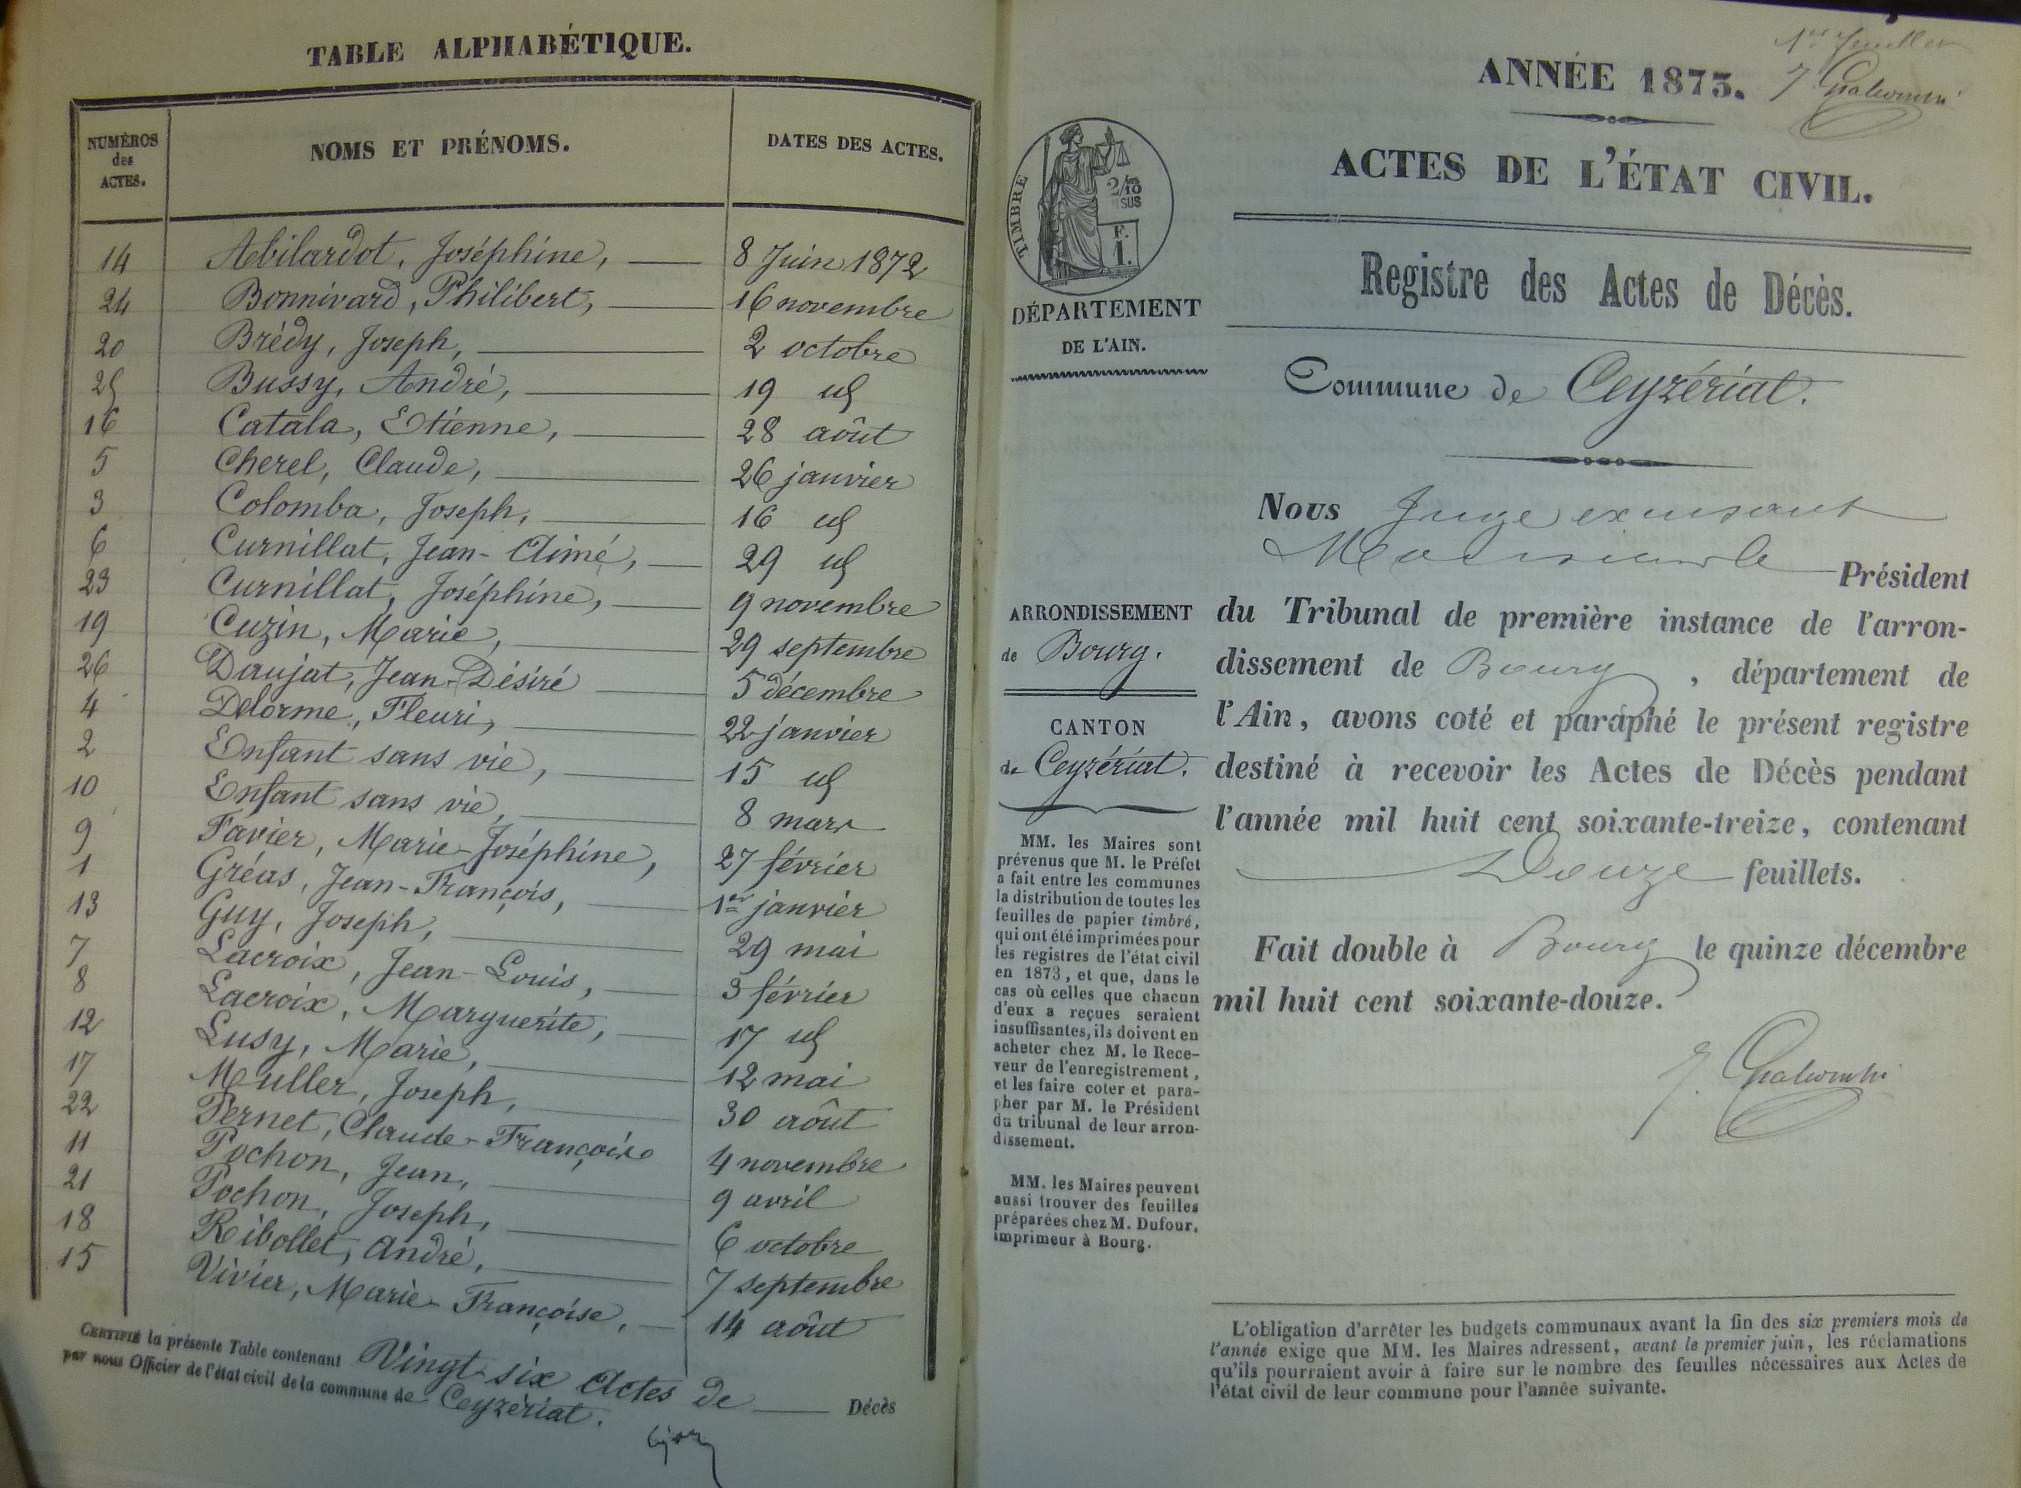 TABLE ALPHABÉTIQUE.
NUMÉROS des ACTES. NOMS ET PRÉNOMS. DATES DES ACTES.
14 Abilardot, Joséphine, 8 Juin 1872
24 Bonnivard, Philibert, 16 novembre
20 Brédy, Joseph, 2 octobre
25 Bussy, André, 19 id
16 Catala, Etienne, 28 août
5 Cherel, Claude, 26 janvier
3 Colomba, Joseph, 16 id
6 Curnillat, Jean-Aimé, 29 id
23 Curnillat, Joséphine, 9 novembre
19 Cuzin, Marie, 29 septembre
26 Daujat, Jean-Désiré 5 décembre
4 Delorme, Fleuri, 22 janvier
2 Enfant sans vie, 15 id
10 Enfant sans vie, 8 mars
9 Favier, Marie-Joséphine, 27 février
1 Gréas, Jean-François, 1er janvier
13 Guy, Joseph, 29 mai
7 Lacroix, Jean-Louis, 3 février
8 Lacroix, Marguerite, 17 id
12 Lusy, Marie, 12 mai
17 Muller, Joseph, 30 août
22 Pernet, Claude-Françoise 4 novembre
11 Pochon, Jean, 9 avril
21 Pochon, Joseph, 6 octobre
18 Ribollet, André, 7 septembre
15 Vivier, Marie-Françoise, 14 août
CERTIFIÉ la présente Table contenant Vingt-six Actes de Décès
par nous Officier de l'état civil de la commune de Ceyzériat.
1er feuillet
ANNÉE 1873.
ACTES DE L'ÉTAT CIVIL.
TIMBRE
2/10
SUS
F.
1.
DÉPARTEMENT
DE L'AIN.
Registre des Actes de Décès.
Commune de Ceyzériat.
ARRONDISSEMENT
de Bourg.
CANTON
de Ceyzériat.
MM. les Maires sont
prévenus que M. le Préfet
a fait entre les communes
la distribution de toutes les
feuilles de papier timbré,
qui ont été imprimées pour
les registres de l'état civil
en 1873, et que, dans le
cas où celles que chacun
d'eux a reçues seraient
insuffisantes, ils doivent en
acheter chez M. le Rece-
veur de l'enregistrement,
et les faire coter et para-
pher par M. le Président
du tribunal de leur arron-
dissement.
MM. les Maires peuvent
aussi trouver des feuilles
préparées chez M. Dufour,
imprimeur à Bourg.
Nous Juge
Président
du Tribunal de première instance de l'arron-
dissement de Bourg, département de
l'Ain, avons coté et paraphé le présent registre
destiné à recevoir les Actes de Décès pendant
l'année mil huit cent soixante-treize, contenant
Douze feuillets.
Fait double à Bourg le quinze décembre
mil huit cent soixante-douze.
L'obligation d'arrêter les budgets communaux avant la fin des six premiers mois de
l'année exige que MM. les Maires adressent, avant le premier juin, les réclamations
qu'ils pourraient avoir à faire sur le nombre des feuilles nécessaires aux Actes de
l'état civil de leur commune pour l'année suivante.